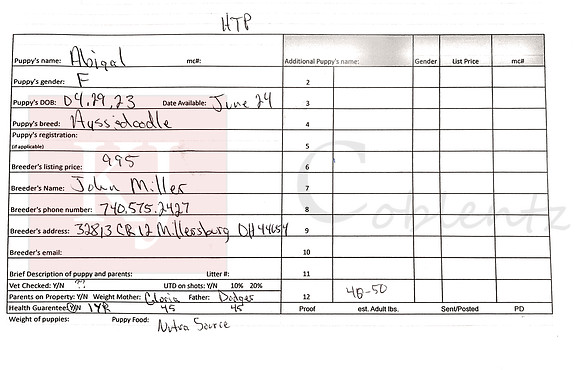 HTP
Puppy's name: Abigal mc#: Additional Puppy's name: Gender List Price mc#
Puppy's gender: F 2
Puppy's DOB: 04.29.23 Date Available: June 24 3
Puppy's breed: Aussiedoodle 4
Puppy's registration:
(if applicable) 5
Breeder's listing price: 995 6
Breeder's Name: John Miller 7
Breeder's phone number: 740.575.2427 8
Breeder's address: 32813 CR 12 Millersburg OH 44654 9
Breeder's email: 10
Brief Description of puppy and parents: Litter #: 11
Vet Checked: Y/N ?? UTD on shots: Y/N 10% 20%
Parents on Property: Y/N Weight Mother: Gloria Father: Dodger 12 40-50
Health Guarentee: Y/N 1YR 45 45 Proof est. Adult lbs. Sent/Posted PD
Weight of puppies: Puppy Food: Nutra Source
KJ Coblentz